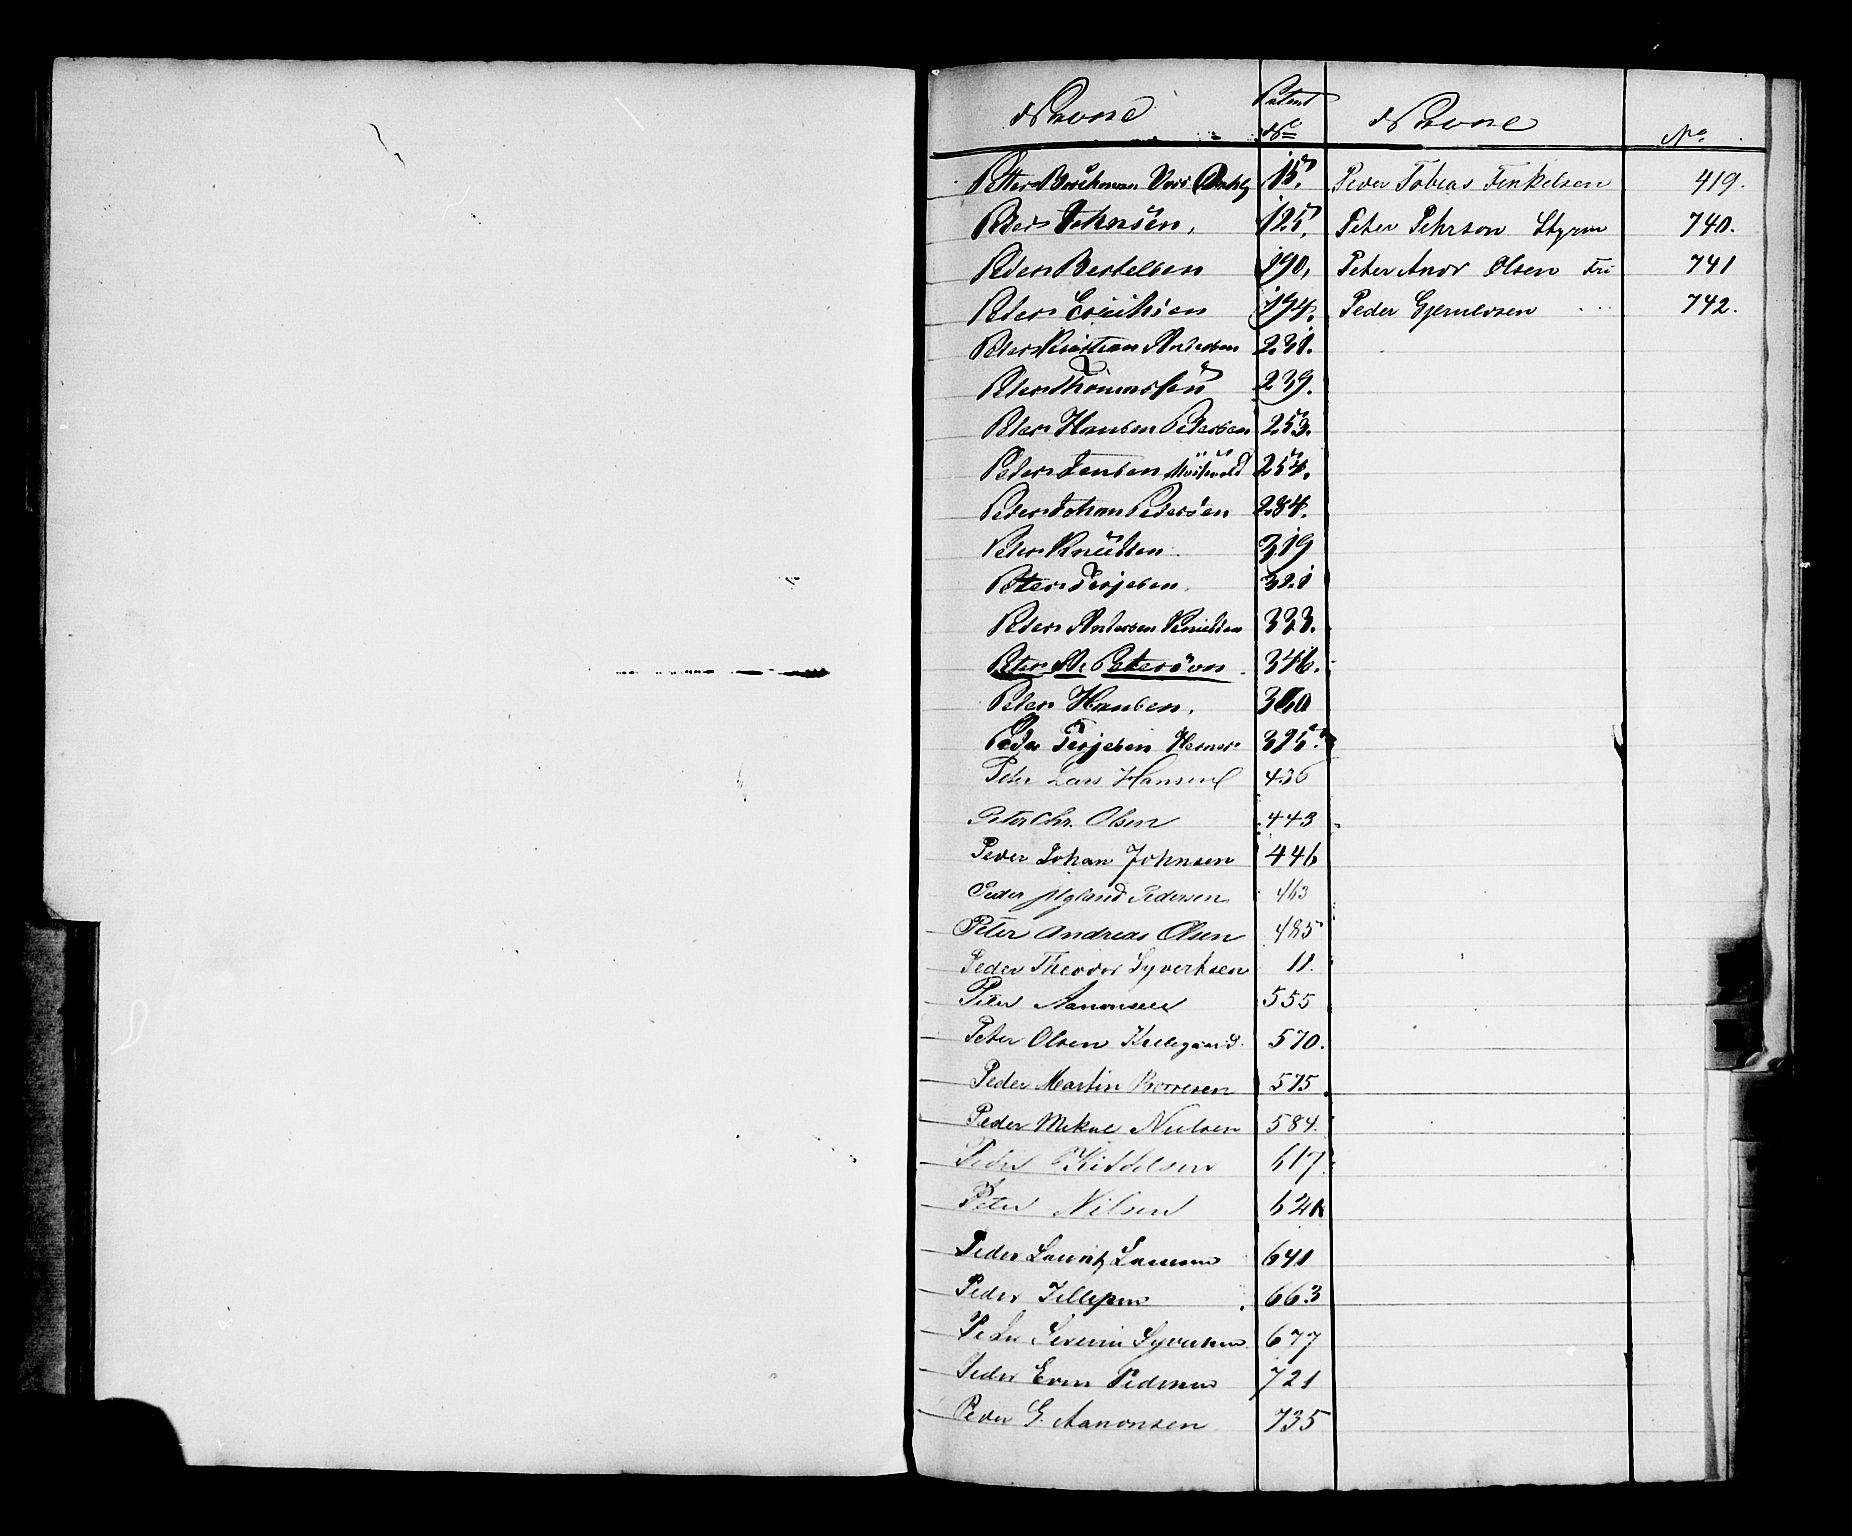 Navne Patent No Navne No
Petter 15. Peder Tobias Finkelsen 419.
Peder Johnsen, 125. Peter Pehrson Styrm 740.
Peder Bertelsen 190, Peter Andr Olsen Fri 741
Peter Erichsen 194. Peder 742.
Peter Kristian Andersen 231.
Peter Thomassen 239.
Peter Hansen Petersen 253.
Peter Jensen 254.
Peder Johan Pedersen 284.
Peter Knudsen 319
Peter Terjesen 321
Peder Andersen Knudsen 333.
Peter M. Petersson 346.
Peter Hansen, 360
Peder Terjesen 395.
Peter Lars Hansen 436
Peter Chr. Olsen 443
Peder Johan Johnsen 446
Peder Nyland Pedersen 463
Peter Andreas Olsen 485
Peder Theodor Syvertsen 11.
Peter Aanonsen 555
Peter Olsen 570.
Peder Martin Borresen 575.
Peder Mikal Nielsen 584.
Peder Kittelsen 617
Peter Nilsen
Peder Lauritz 641
Peder Jellepsen 663
Peder Severin Syvertsen 677
Peder Even Pedersen 721
Peder G. Aanonsen 735